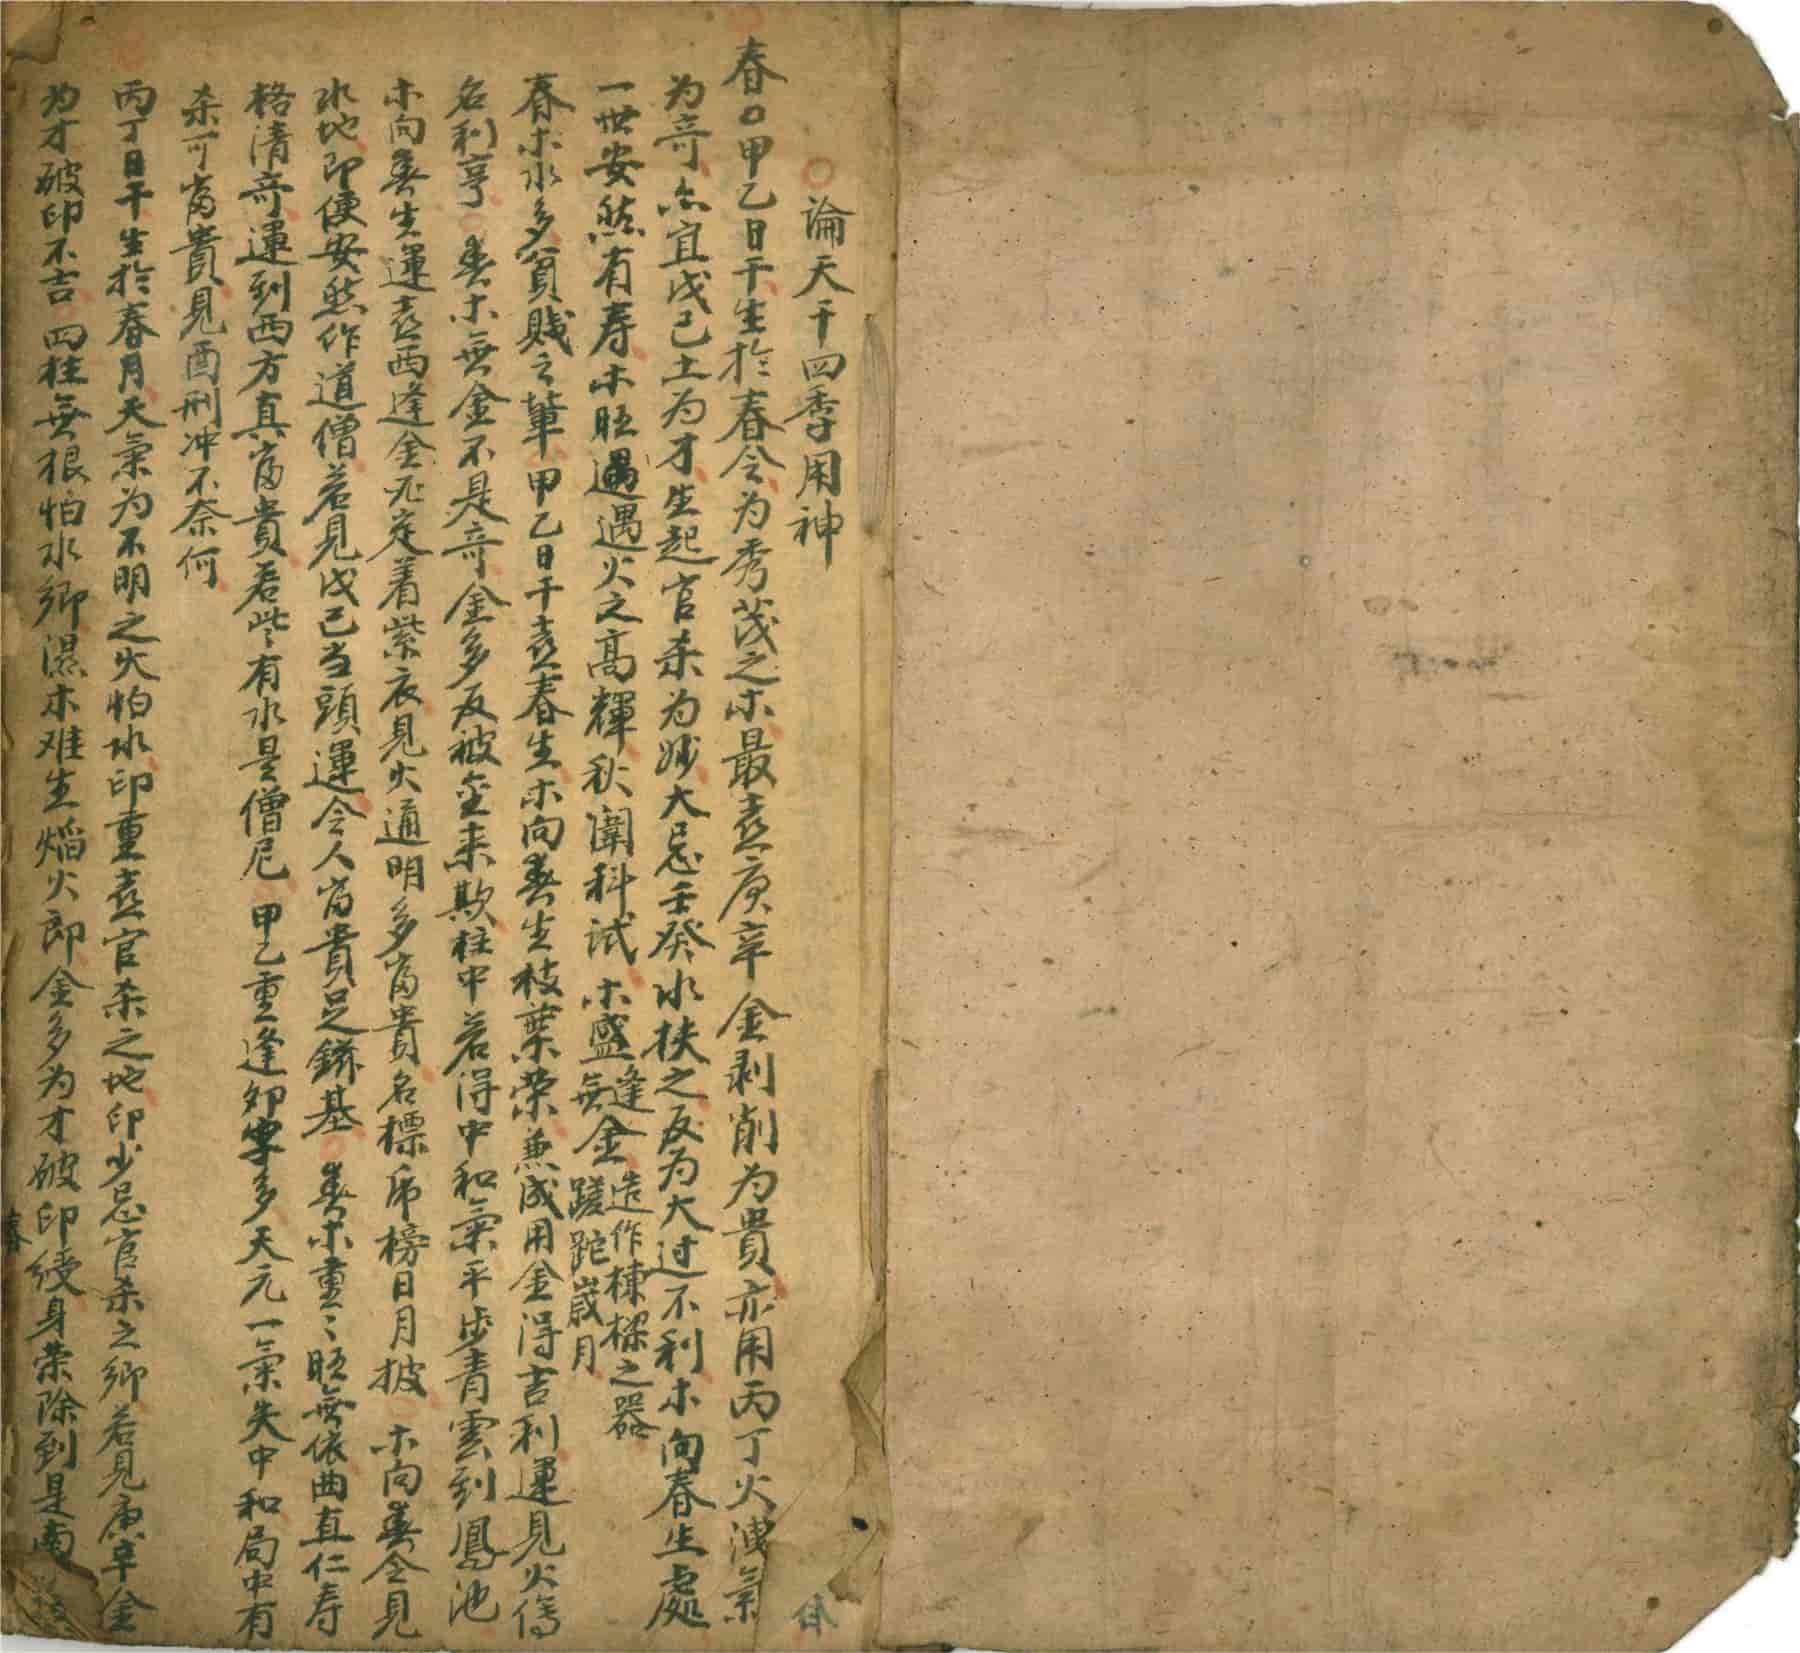 ○論天干四季用神
春○甲乙日干生於春令为秀茂之木最喜庚辛金剥削为貴亦用丙丁火洩氣
为奇亦宜戊己土为才生起官杀为妙大忌壬癸水扶之反为大过不利木向春生處
一世安然有寿木旺遇遇火之高輝秋闈科試木盛逢金造作棟樑之器
無金蹉跎歲月
春木水多貧賎之輩甲乙日干喜春生木向春生枝葉荣兼成用金得吉利運見火傷
名利亨春木無金不是奇金多反被金来欺柱中若得中和氣平步青雲到鳳池
木向春生運喜西逢金定着紫衣見火通明多富貴名標帝榜日月披木向春令見
水地即便安然作道僧若見戊己当頭運令人富貴足鎡基○春木重々旺無依曲直仁寿
格清奇運到西方真富貴若些有水是僧尼甲乙重逢卯字多天元一氣失中和局中有
杀可富貴見酉刑冲不奈何
丙丁日干生於春月天氣为不明之火怕水印重喜官杀之地印少忌官杀之鄉若見庚辛金
为才破印不吉四柱無根怕水鄉濕木难生焰火郎金多为才破印綬身荣除到是南
春